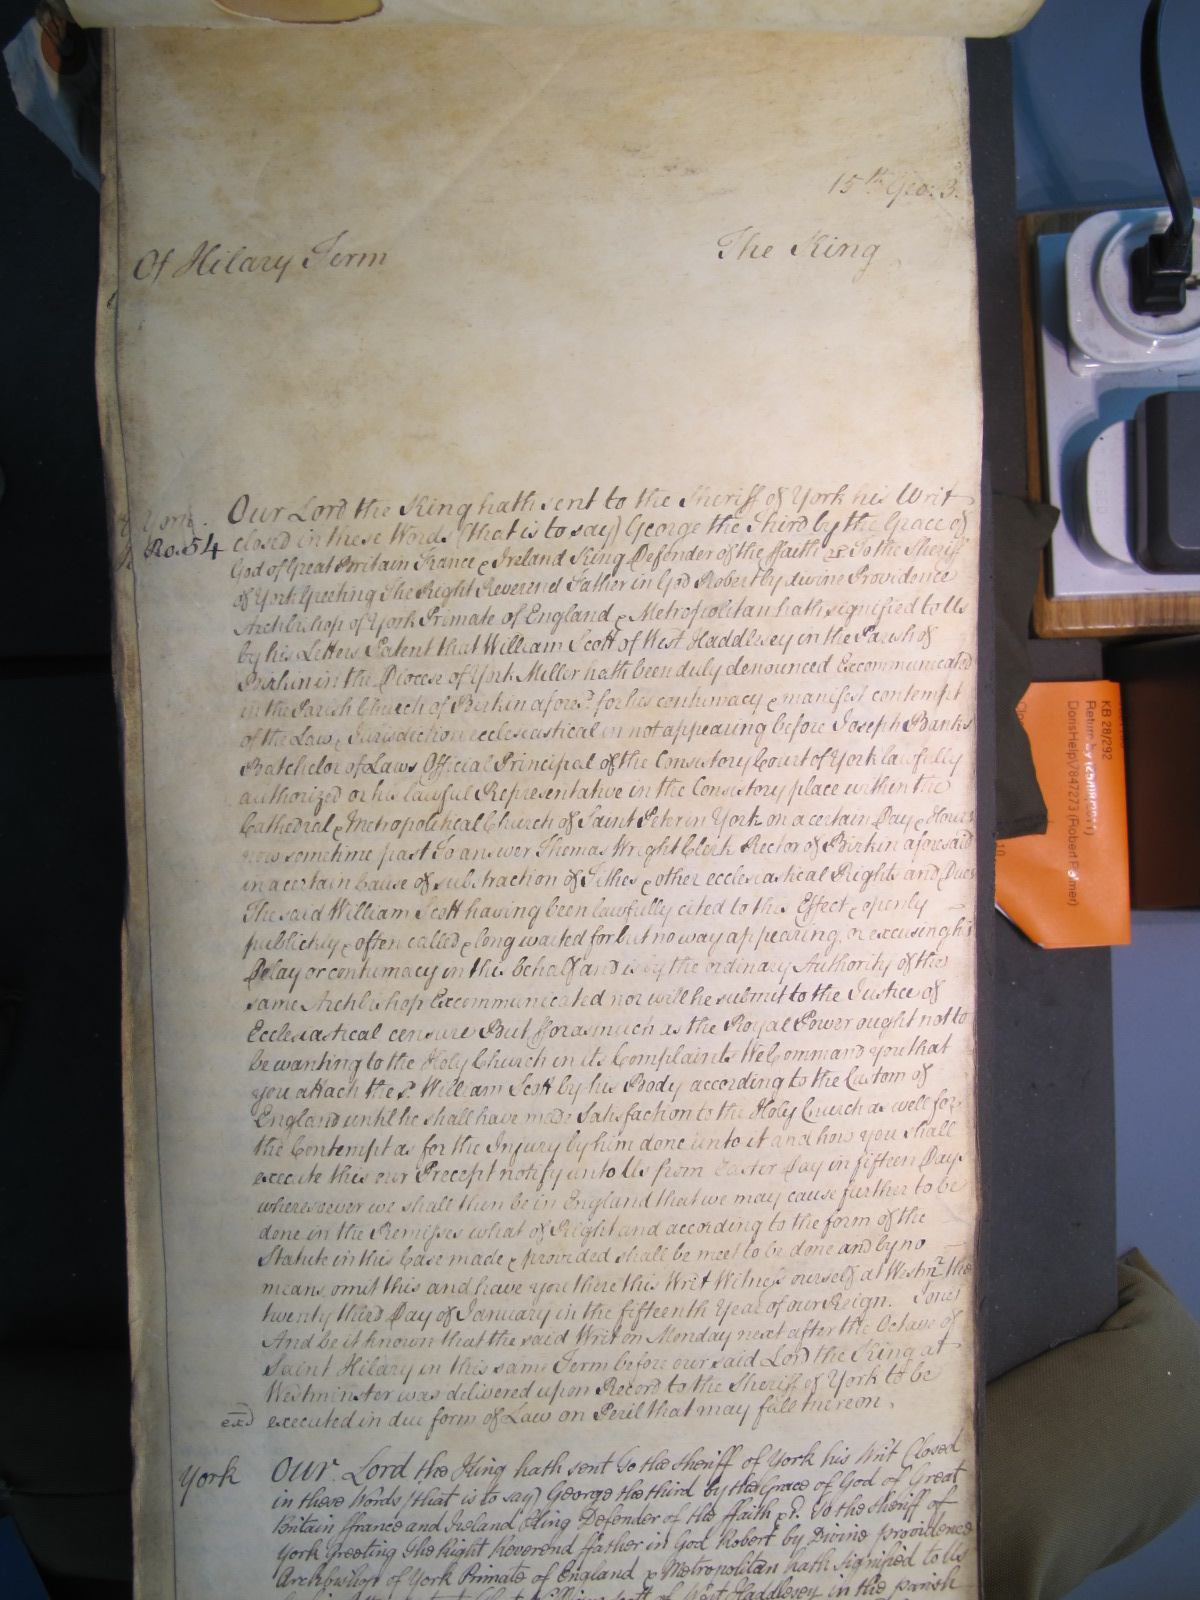 15th Geo: 3.
Of Hilary Term The King
York. Our Lord the King hath sent to the Sheriff of York his Writ
Ro. 54 closed in these Words (that is to say) George the Third by the Grace of
God of Great Britain France & Ireland King Defender of the ffaith &c To the Sheriff
of York Greeting The Right Reverend Father in God Robert by divine Providence
Archbishop of York Primate of England & Metropolitan hath signified to Us
by his Letters Patent that William Scott of West Haddlesey in the Parish of
Birkin in the Diocese of York Miller hath been duly denounced Excommunicated
in the Parish Church of Birkin afores.d for his contumacy & manifest contempt
of the Law & Jurisdiction ecclesiastical in not appearing before Joseph Banks
Batchelor of Laws Official Principal of the Consistory Court of York lawfully
authorized or his lawful Representative in the Consistory place within the
Cathedral & Metropolitical Church of Saint Peter in York on a certain Day & Hours
now sometime past to answer Thomas Wright Clerk Rector of Birkin aforesaid
in a certain Cause of substraction of Tithes & other ecclesiastical Rights and Dues
The said William Scott having been lawfully cited to this Effect & openly
publickly & often called & long waited for but no way appearing or excusing his
Delay or contumacy in this behalf and is by the ordinary Authority of the
same Archbishop Excommunicated nor will he submit to the Justice of
Ecclesiastical censure But fforasmuch as the Royal Power ought not to
be wanting to the Holy Church in its Complaints We Command you that
you attach the s.d William Scott by his Body according to the Custom of
England until he shall have made Satisfaction to the Holy Church as well for
the Contempt as for the Injury by him done unto it and how you shall
execute this our Precept notify unto Us from Easter Day in fifteen Days
wheresoever we shall then be in England that we may cause further to be
done in the Premisses what of Right and according to the form of the
Statute in this Case made & provided shall be meet to be done and by no
means omit this and have you there this Writ Witness ourself at Westm.r the
twenty third Day of January in the fifteenth Year of our Reign.
And be it known that the said Writ on Monday next after the Octave of
Saint Hilary in this same Term before our said Lord the King at
Westminster was delivered upon Record to the Sheriff of York to be
exd executed in due form of Law on Peril that may fall thereon.
York Our Lord the King hath sent to the Sheriff of York his Writ Closed
in these Words (that is to say) George the third by the Grace of God of Great
Britain ffrance and Ireland King Defender of the ffaith &c. To the Sheriff of
York Greeting The Right Reverend ffather in God Robert by Divine providence
Archbishop of York Primate of England & Metropolitan hath signified to Us
of West Haddlesey in the parish
KB 28/292
Return by (25/08/2011)
DorisHelp\7847273 (Robert Palmer)